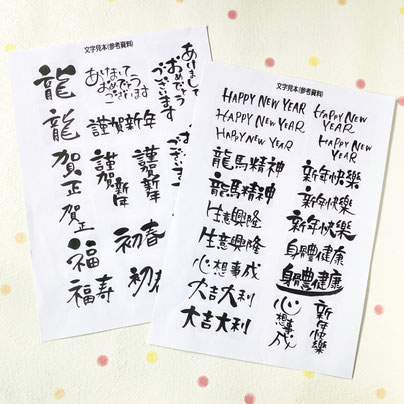 文字見本(参考資料)
龍
龍
賀正
賀正
福
福寿
あけまして
おめでとう
ございます
謹賀新年
謹賀
新年
謹賀
新年
初春
初春
あけまして
おめでとう
ございます
おめでとう
ございます
文字見本(参考資料)
HAPPY NEW YEAR
HAPPY NEW YEAR
HAPPY NEW YEAR
龍馬精神
龍馬精神
生意興隆
生意興隆
心想事成
大吉大利
大吉大利
HAPPY NEW
YEAR
HAPPY NEW
YEAR
新年快樂
新年快樂
新年快樂
身體健康
身體健康
心想事成
新年快樂